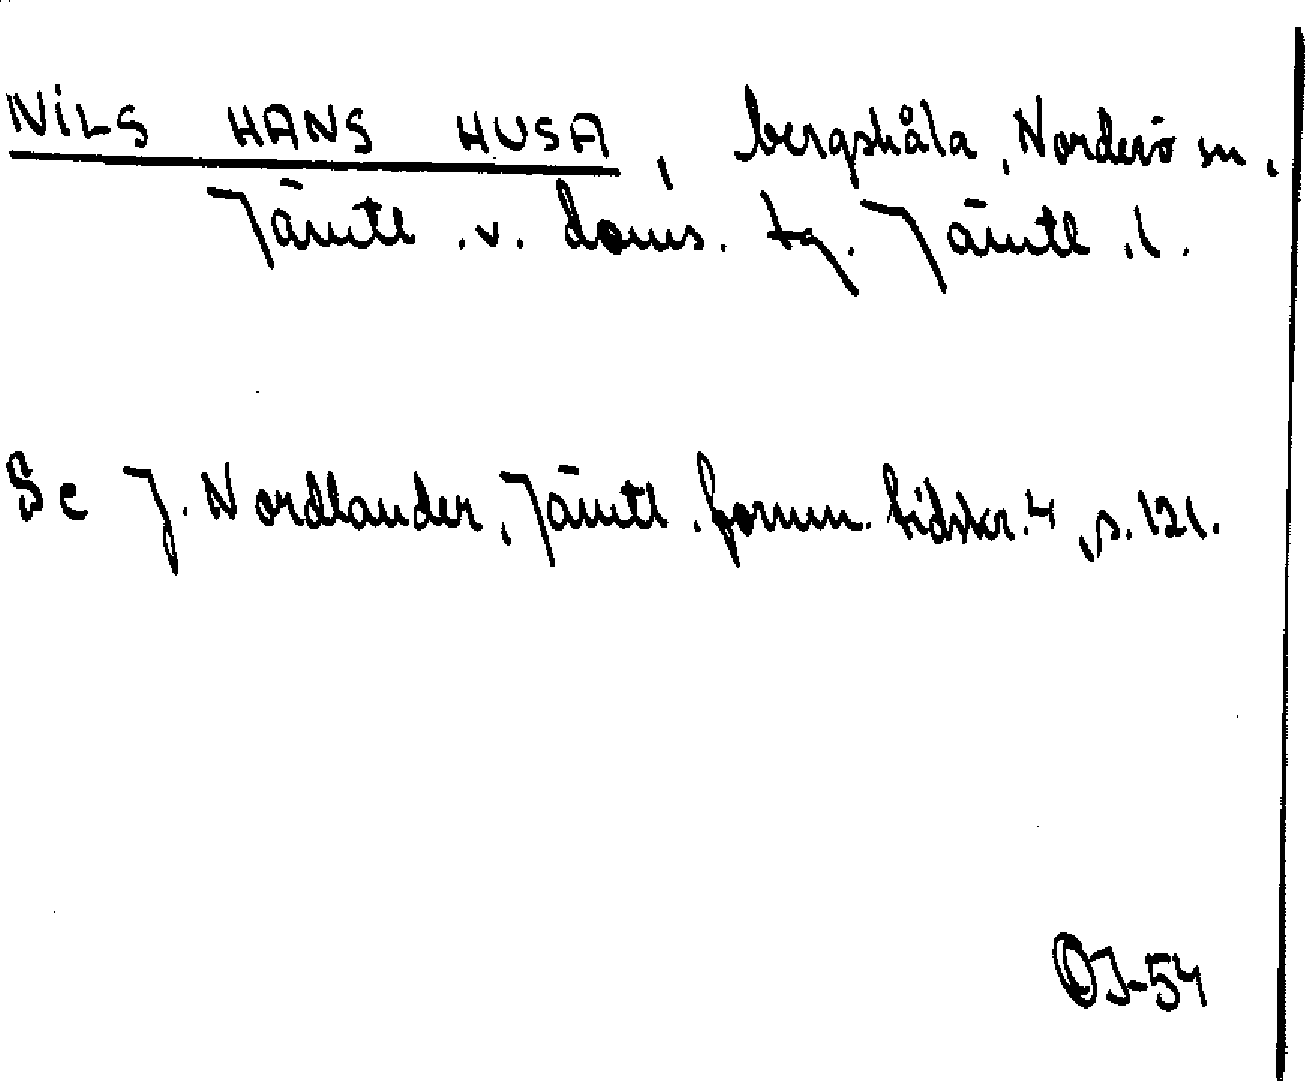 NILS HANS HUSA, bergshåla, Norderö sn.
Jämtl. v. doms. tg. Jämtl. l.
Se J. Nordlander, Jämtl. fornm. tidskr. 4, s. 121.
OJ-54